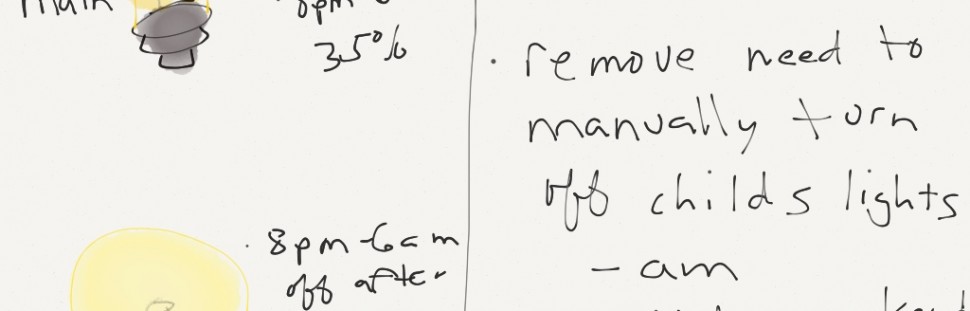 main
35%
8pm-6am
off after
• remove need to
manually turn
off childs lights
- am